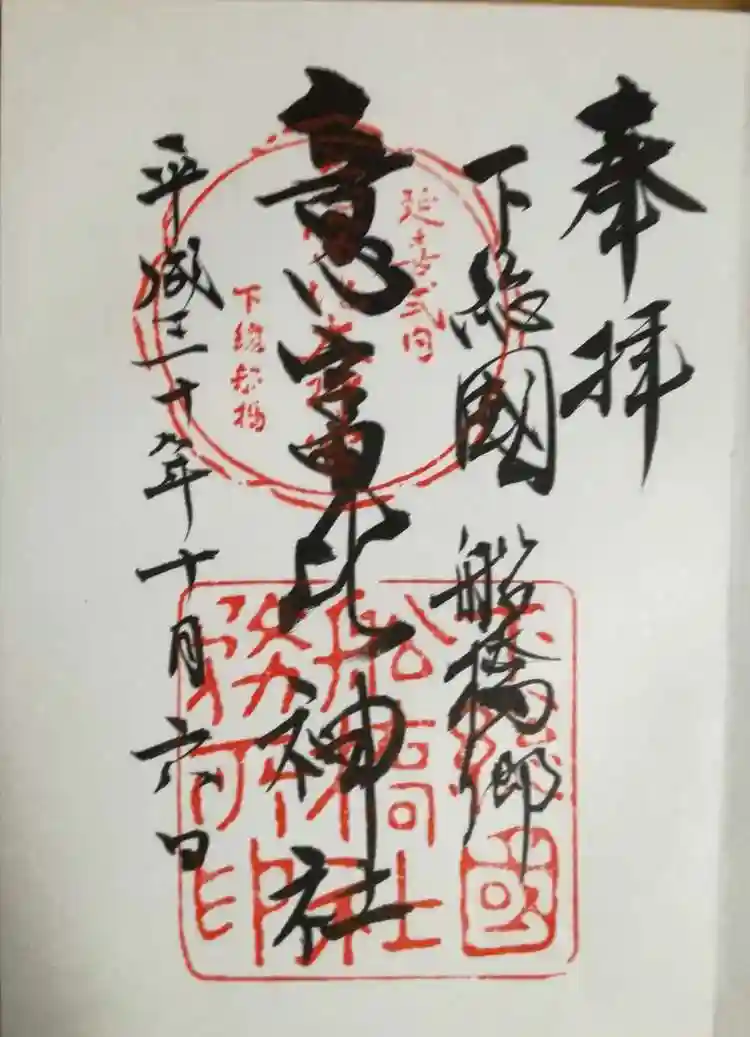 奉拝
下総國 船橋郷
意富比神社
平成三十年十月六日
延喜式内
下総船橋